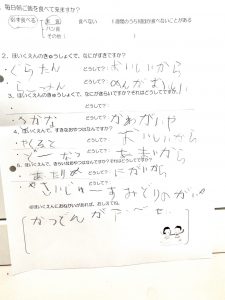 毎日朝ご飯を食べて来ますか?
必ず食べる 米食 食べない 1週間のうち 食べないことがある
パン食
その他(
2．ほいくえんのきゅうしょくで、なにがすきですか?
ぐらたん どうして? おいしいから
らーめん どうして? めんが
3．ほいくえんのきゅうしょくで、なにがきらいですか？それはどうしてですか?
さかな どうして? かわがいや
4．ほいくえんで、すきなおやつはなんですか?
やくると どうして? おいしいから
どーなつ どうして? あまいから
5．ほいくえんで、きらいなおやつはなんですか？それはどうしてですか?
どうして? にがいから
やさいじゅーす みどりのがいや
※ほいくえんにおねがいがあれば、おしえてね。
かつどんが